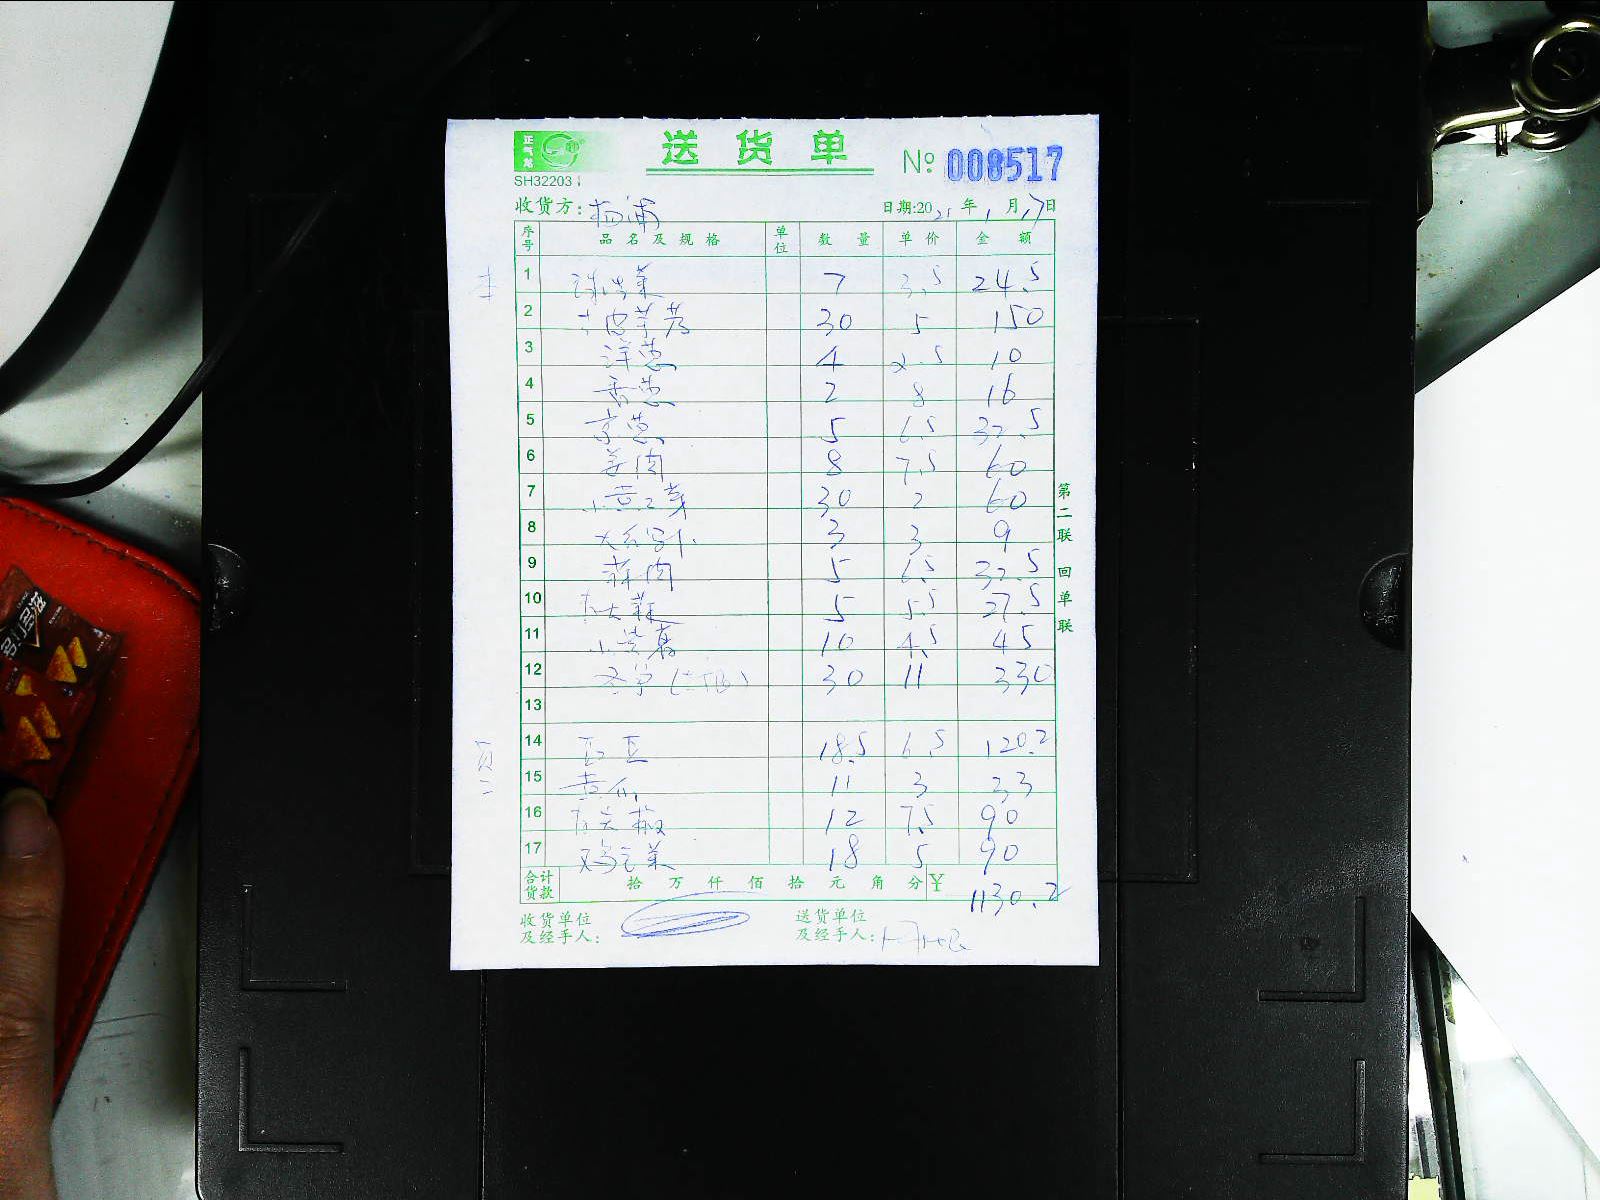 正气龙
送货单
№ 008517
SH32203
收货方: 杨浦
日期:2021年1月17日
序号 品名及规格 单位 数量 单价 金额
1 7 3.5 24.5
2 30 5 150
3 洋葱 4 2.5 10
4 香葱 2 8 16
5 京葱 5 6.5 32.5
6 姜肉 8 7.5 60
7 30 2 60
8 3 3 9
9 蒜肉 5 6.5 32.5
10 5 5.5 27.5
11 10 4.5 45
12 30 11 330
13
14 豇豆 18.5 6.5 120.2
15 黄瓜 11 3 33
16 尖椒 12 7.5 90
17 鸡毛菜 18 5 90
合计货款 拾 万 仟 佰 拾 元 角 分 ¥ 1130.2
收货单位及经手人:
送货单位及经手人:
第二联 回单联